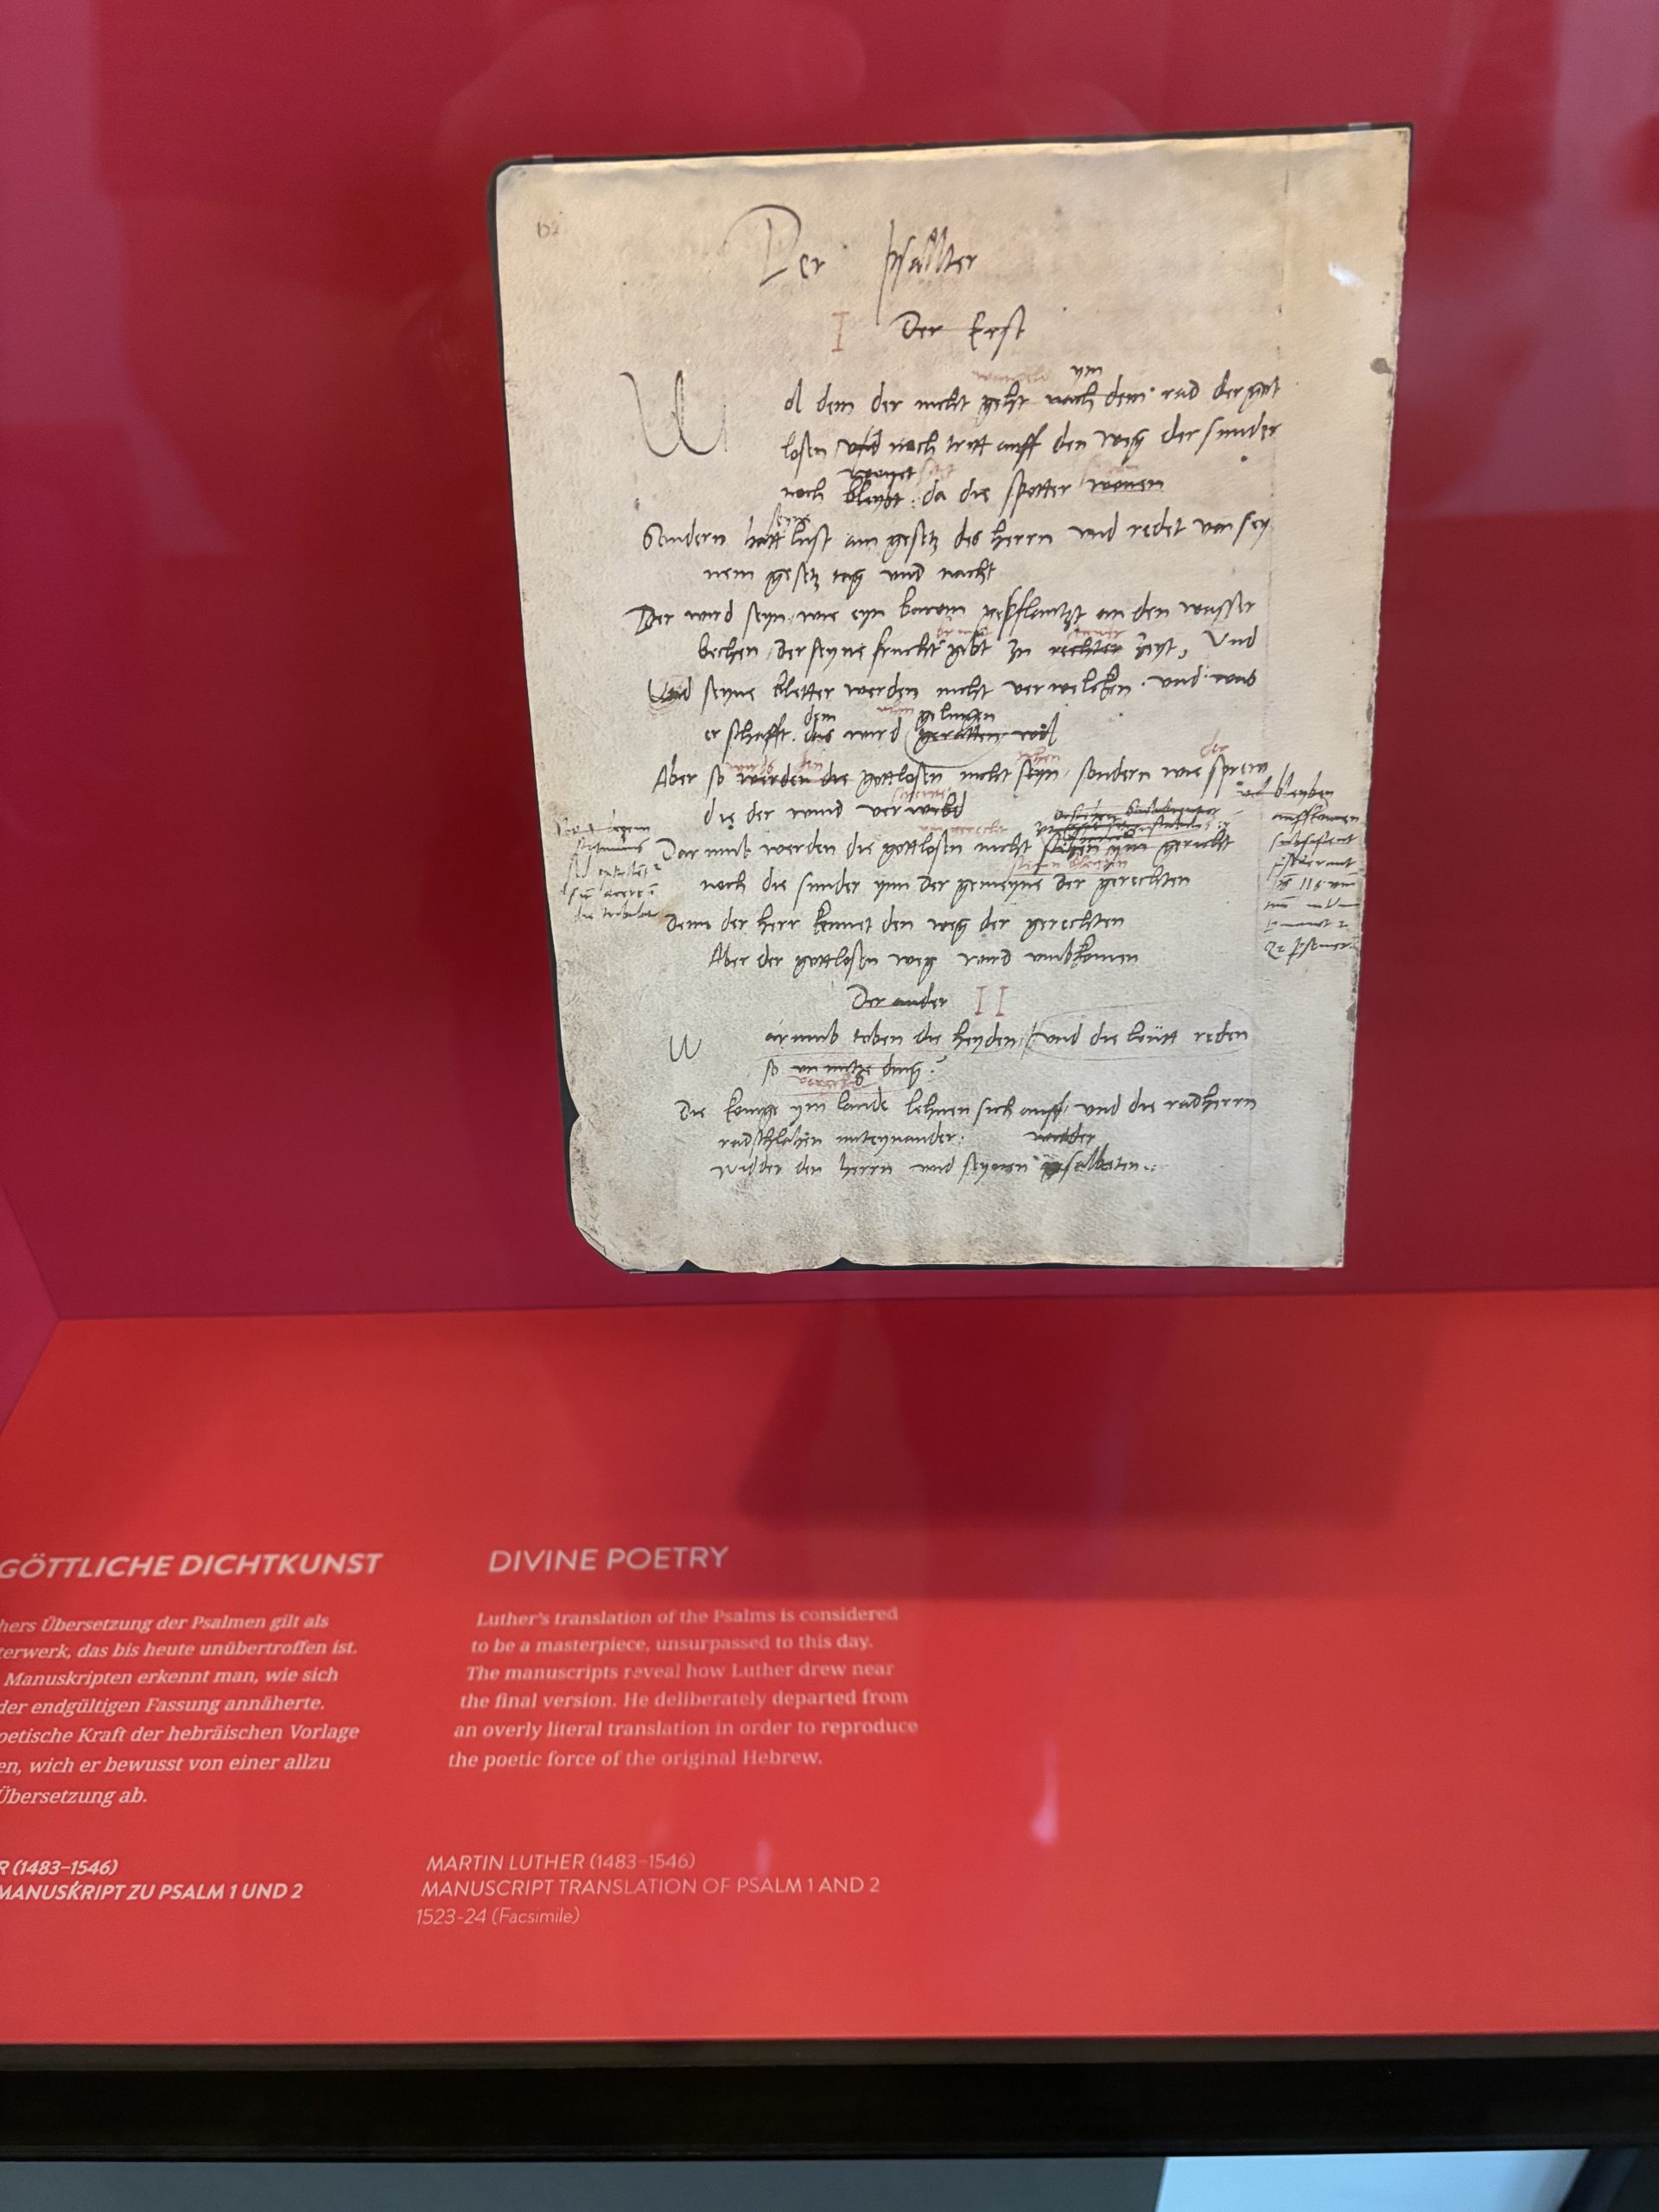 Der psallter
I Der Erst
ym
Wol dem der nicht geht nach dem rad der gott
losen und noch tritt auff den weg der sunder
noch bleybt da die spotter wonen
seyne
Sondern hatt lust am gesetz des herrn und redet von sey
nem gesetz tag und nacht
Der wird seyn wie eyn bawm gepflantzt an den wasser
bechen, der seyne frucht gibt zu rechter zeyt, Und
Und seyne bletter werden nicht verwelcken. und was
dem gelingen
er schafft. das wird geratten wol
der
Aber so werden die gottlosen nicht seyn, sondern wie sprew
die der wind verwebd
bleyben
auffkomen
Darumb werden die gottlosen nicht ym gericht
noch die sunder ynn der gemeyne der gerechten
Denn der herr kennet den weg der gerechten
Aber der gottlosen weg wird umbkomen
Der ander II
Warumb toben die heyden, und die leutt reden
so unnutze ding?
Die konige ym lande lehnen sich auff, und die radherrn
radschlahen miteynander: widder
widder den herrn und seynen gesalbeten.
GÖTTLICHE DICHTKUNST
hers Übersetzung der Psalmen gilt als
terwerk, das bis heute unübertroffen ist.
Manuskripten erkennt man, wie sich
der endgültigen Fassung annäherte.
poetische Kraft der hebräischen Vorlage
en, wich er bewusst von einer allzu
Übersetzung ab.
R (1483–1546)
MANUSKRIPT ZU PSALM 1 UND 2
DIVINE POETRY
Luther's translation of the Psalms is considered
to be a masterpiece, unsurpassed to this day.
The manuscripts reveal how Luther drew near
the final version. He deliberately departed from
an overly literal translation in order to reproduce
the poetic force of the original Hebrew.
MARTIN LUTHER (1483–1546)
MANUSCRIPT TRANSLATION OF PSALM 1 AND 2
1523-24 (Facsimile)